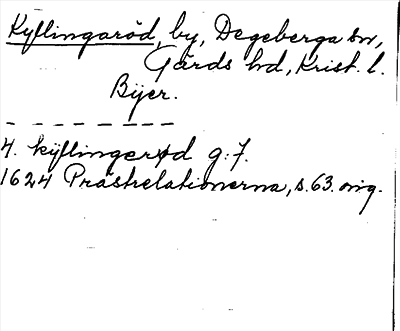 Kyflingaröd, by, Degeberga sn,
Gärds hd, Krist. l.
Bijer.
4. kÿflingerød g:7.
1624 Prästrelationerna, s. 63. orig.